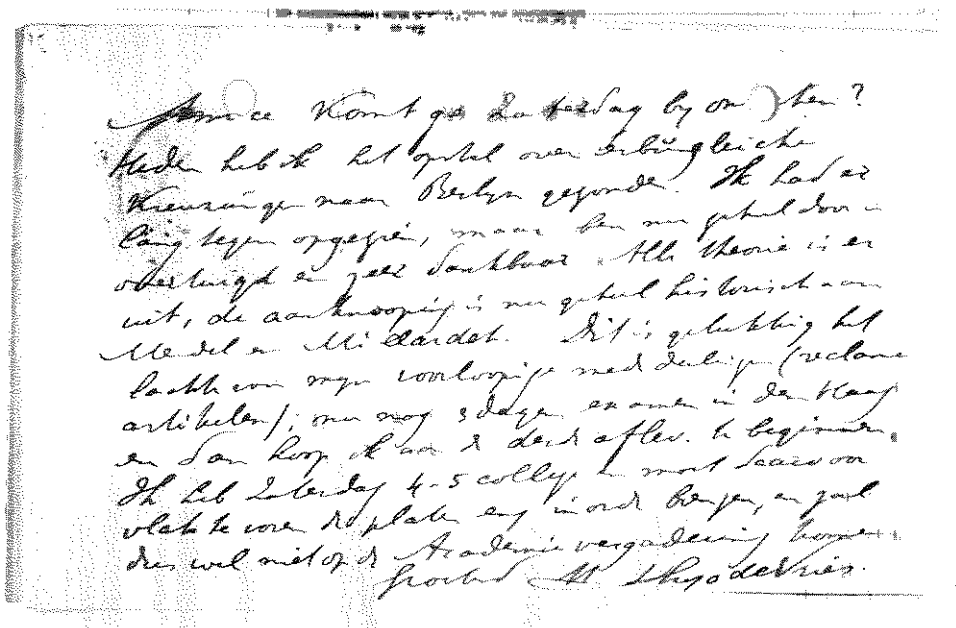 Amice Komt ge Zaterdag by ons eten?
Heden heb ik het opstel over erbungleiche
Kreuzungen naar Berlyn gezonden. Ik had er
lang tegen opgezien, maar ben nu geheel door
overtuigd en zeer dankbaar. Alle theorie is er
uit, de aanknooping is nu geheel historisch aan
Mendel en Millardet. Dit is gelukkig het
laatste van myn voorloopige mededeelingen (reclame
artikelen); nu nog 3 dagen examen in den Haag
en dan hoop ik aan de derde aflev. te beginnen.
Ik heb Zaterdag 4-5 college en moet daarvoor
vlak te voren de platen enz in orde brengen, en zal
dus wel niet op de Academie vergadering komen.
Groetend Hugo de Vries.